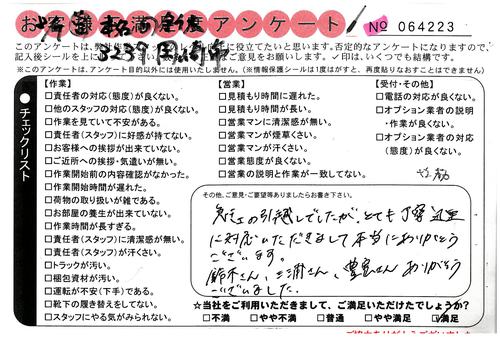 お客様満足度アンケート
№ 064223
このアンケートは
に役立てたいと思います。否定的なアンケートになりますので、
記入後シールを上に
ご意見をお願いします。✓印は、いくつでも結構です。
※このアンケートは、アンケート目的以外には使用いたしません。(※情報保護シールは1度はがすと、再度貼りなおすことはできません。)
チェックリスト
【作業】
□責任者の対応(態度)が良くない。
□他のスタッフの対応(態度)が良くない。
□作業を見ていて不安がある。
□責任者(スタッフ)に好感が持てない。
□お客様への挨拶が出来ていない。
□ご近所への挨拶・気遣いが無い。
□作業開始前の内容確認がなかった。
□作業開始時間が遅れた。
□荷物の取り扱いが雑である。
□お部屋の養生が出来ていない。
□作業時間が長すぎる。
□責任者(スタッフ)に清潔感が無い。
□責任者(スタッフ)が汗くさい。
□トラックが汚い。
□梱包資材が汚い。
□運転が不安(下手)である。
□靴下の履き替えをしてない。
□スタッフにやる気がみられない。
【営業】
□見積もり時間に遅れた。
□見積もり時間が長い。
□営業マンに清潔感が無い。
□営業マンが煙草くさい。
□営業マンが汗くさい。
□営業態度が良くない。
□営業の説明と作業が一致してない。
【受付・その他】
□電話の対応が良くない。
□オプション業者の説明
・作業が良くない。
□オプション業者の対応
(態度)が良くない。
その他、ご意見・ご要望等ありましたらお書き下さい。
急な引越しでしたが、とても丁寧迅速
に対応いただきまして本当にありがとう
ございます。
鈴木さん、三浦さん、豊島さん ありがとう
ございました。
☆当社をご利用いただきまして、ご満足いただけたでしょうか?
□不満 □やや不満 □普通 □やや満足 ☑満足
ご協力ありがとうございました